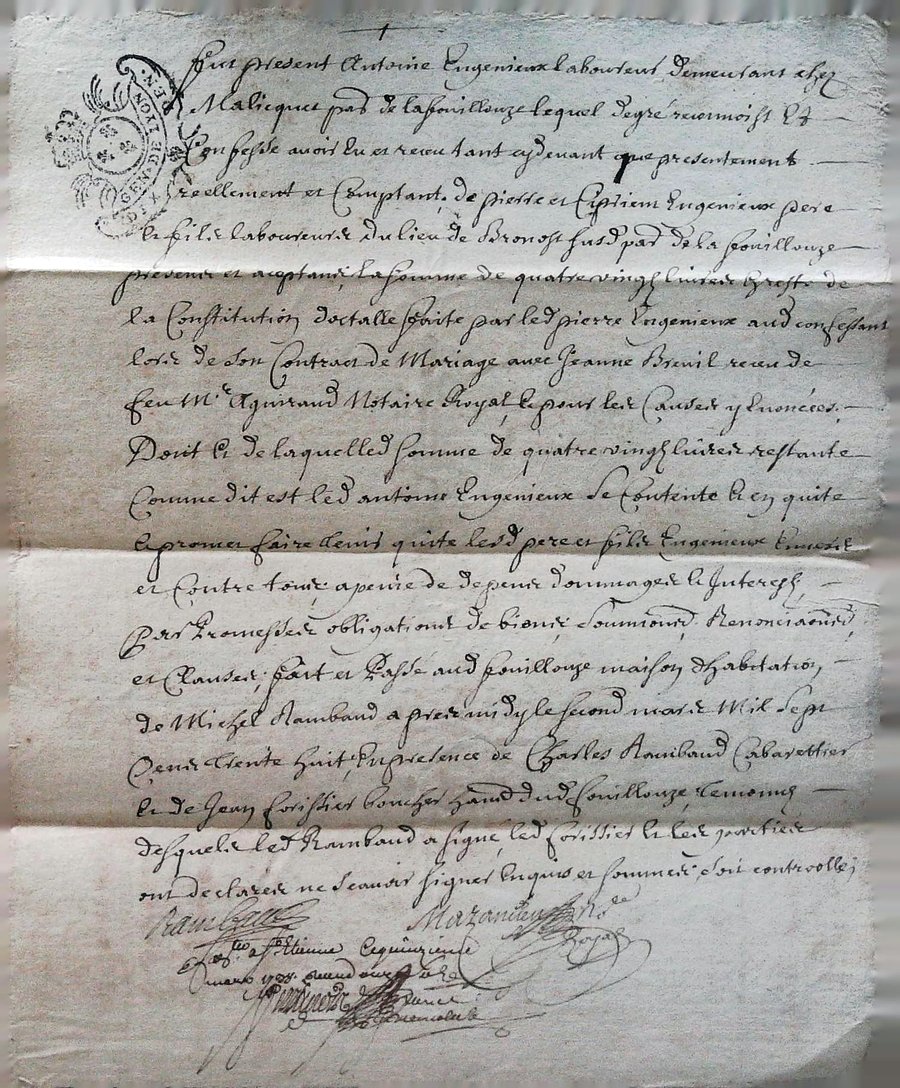 GEN. DE LYON
DIX DEN.
Fut present Antoine Engenieux laboureur demeurant chez
Malicques par de la fouillouze lequel de gré reconnoist Et
Confesse avoir Eu et receu tant cydevant que presentement
reellement et Comptant, de pierre et Ciprien Engenieux pere
& fils laboureurs du lieu de Bronost susd par de la fouillouze
presens et aceptans la somme de quatre vingt livres Et reste de
la Constitution dotalle faite par led pierre Engenieux aud confessant
lors de son Contract de Mariage avec Jeanne Breuil receu de
feu Mr Aguiraud Notaire Royal, & pour les Causes y Enoncées,
Dont & de laquelled somme de quatre vingt livres restante
Comme dit est led antoine Engenieux se Contente & en quite
& promet faire tenir quite lesd pere et fils Engenieux Envers
et Contre tous, a peine de depens dommages & Interests,
Par Promesses obligations de biens, soumions, Renonciaons,
et Clauses, fait et Passé aud fouillouze maison d'habitation
de Michel Rambaud apres midy le second mars Mil Sept
Cens trente huit, En presence de Charles Rambaud Cabarettier
& de Jean forissier boucher dud fouillouze, temoins
desquels led Rambaud a signé, led forissier & les parties
ont declarés ne scavoir signer Enquis et sommés, soit controollé,
Rambaud Mazancieu No.re
Royal
Con.llé a St Etienne le quinzieme
mars 1738.